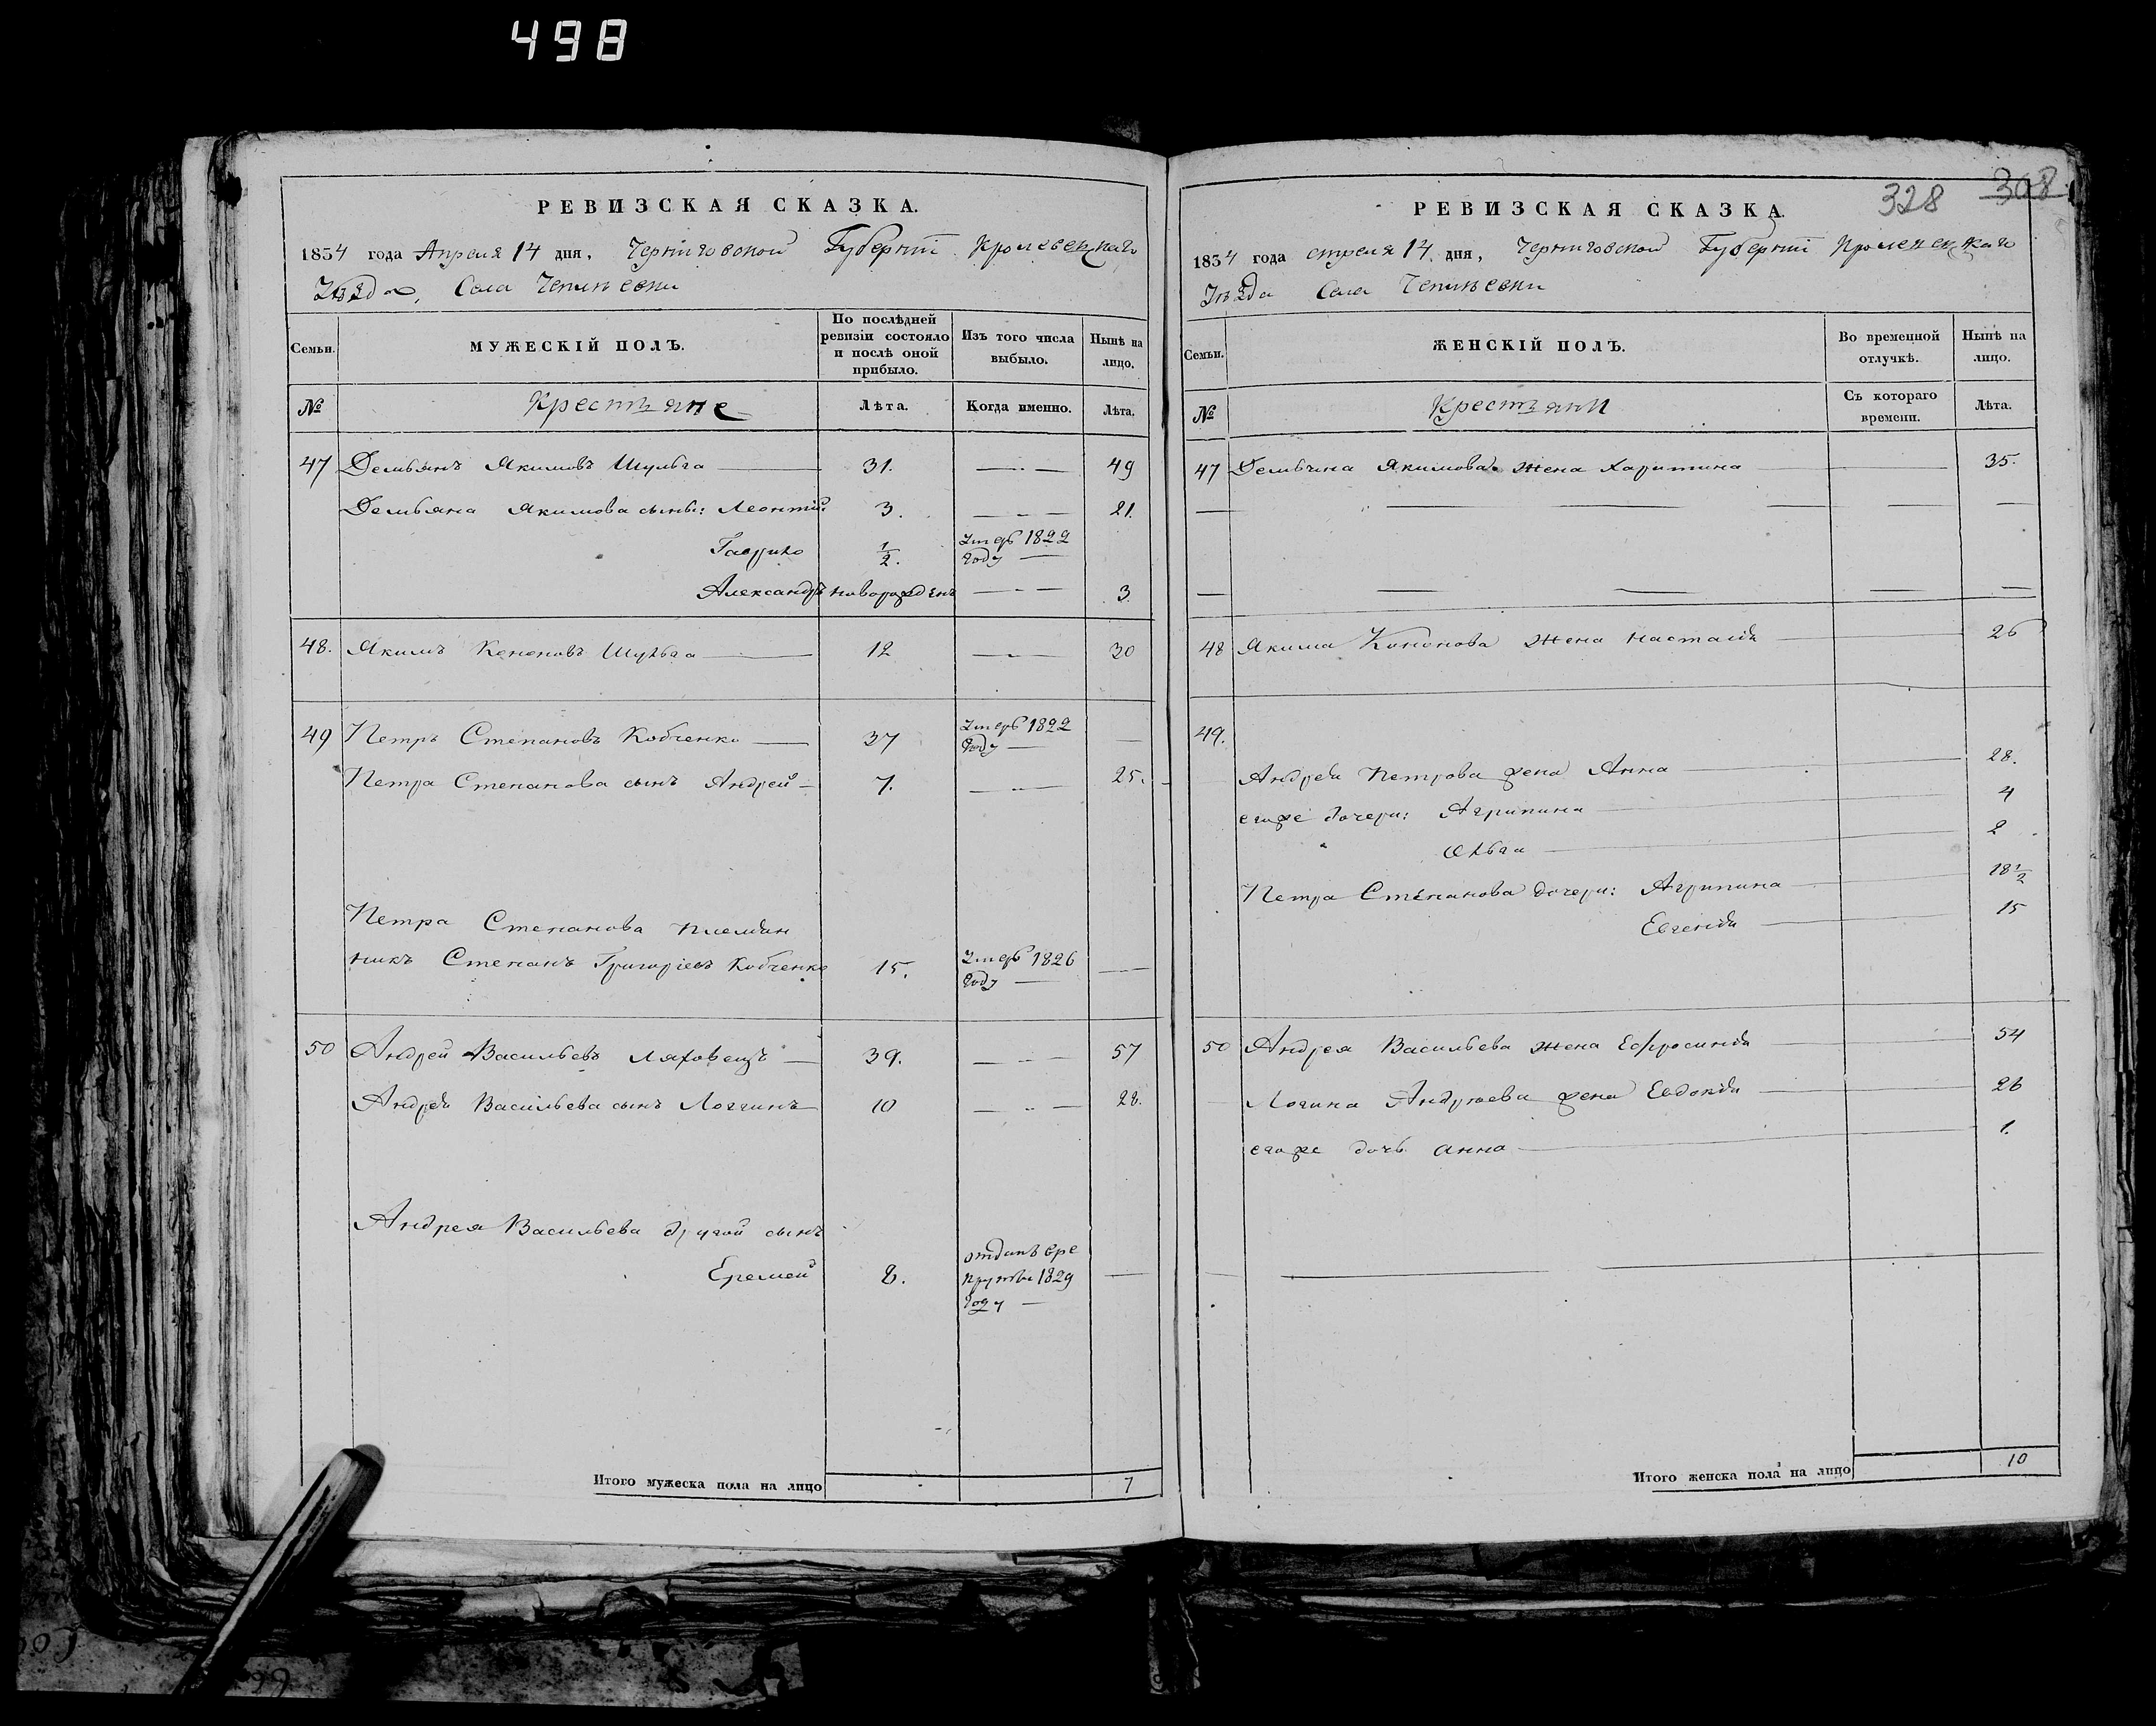 498
РЕВИЗСКАЯ СКАЗКА.
1834 года Апреля 14 дня, Черниговской Губернiи Кролевецкаго
Уѣзда, Села Чепліевки
Семьи.
МУЖЕСКІЙ ПОЛЪ.
По послѣдней ревизіи состояло и послѣ оной прибыло.
Изъ того числа выбыло.
Нынѣ на лицо.
№
Крестьяне
Лѣта.
Когда именно.
Лѣта.
47 Демьянъ Якимовъ Шульга 31. 49
Демьяна Якимова сынъ: Леонтій 3. 21.
Гаврило 1/2. Умеръ 1822 году
Александръ новорожденъ 3
48. Якимъ Кононовъ Шульга 12 30
49 Петръ Степановъ Кобченко 37 Умеръ 1822 году
Петра Степанова сынъ Андрей 7. 25.
Петра Степанова племян
никъ Степанъ Григоріевъ Кобченко 15. Умеръ 1826 году
50 Андрей Васильевъ Ляховецъ 39. 57
Андрея Васильева сынъ Логгинъ 10 28.
Андрея Васильева другой сынъ
Еремей 8. отданъ вре
круты 1829
году
Итого мужеска пола на лицо 7
328 308
РЕВИЗСКАЯ СКАЗКА.
1834 года апреля 14 дня, Черниговской Губерніи Кролевецкаго
Уѣзда Села Чепліевки
Семьи.
ЖЕНСКІЙ ПОЛЪ.
Во временной отлучкѣ.
Нынѣ на лицо.
№
Крестьяни
Съ котораго времени.
Лѣта.
47 Демьяна Якимова жена Харитина 35.
48 Якима Кононова жена Настасія 26
49.
Андрея Петрова жена Анна 28.
егоже дочери: Агрипина 4
Ольга 2
Петра Степанова дочери: Агрипина 18 1/2
Евгенія 15
50 Андрея Васильева жена Ефросинія 54
Логина Андреева жена Евдокія 26
егоже дочь анна 1.
Итого женска пола на лицо 10